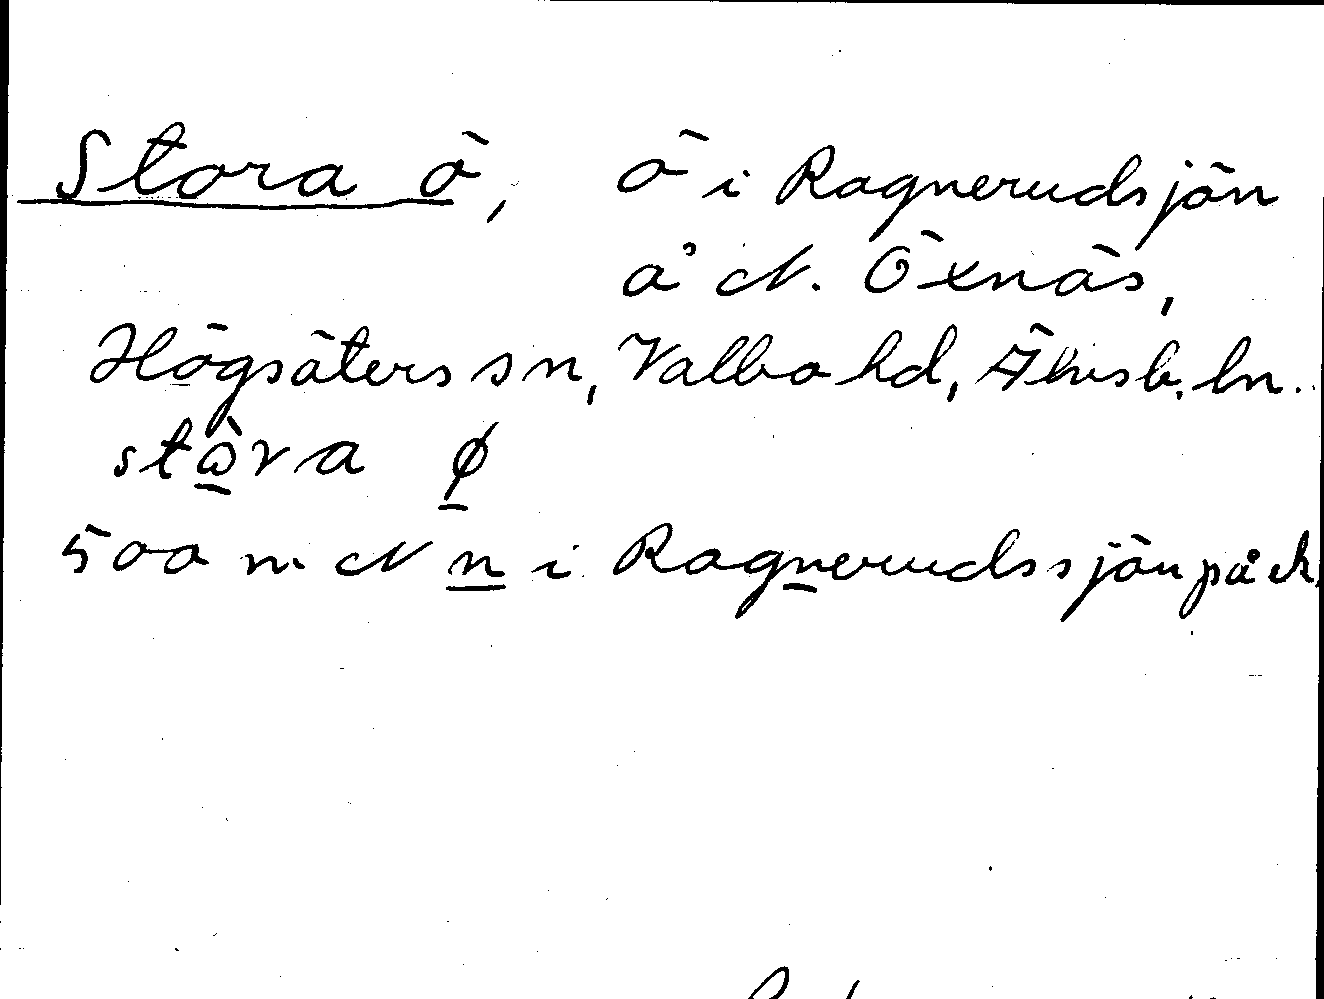 Stora ö, ö i Ragnerudsjön
å N. Öxnäs,
Högsäters sn, Valbo hd, Älvsb. ln.
stòra ø
500 m N n i Ragnerudssjön på